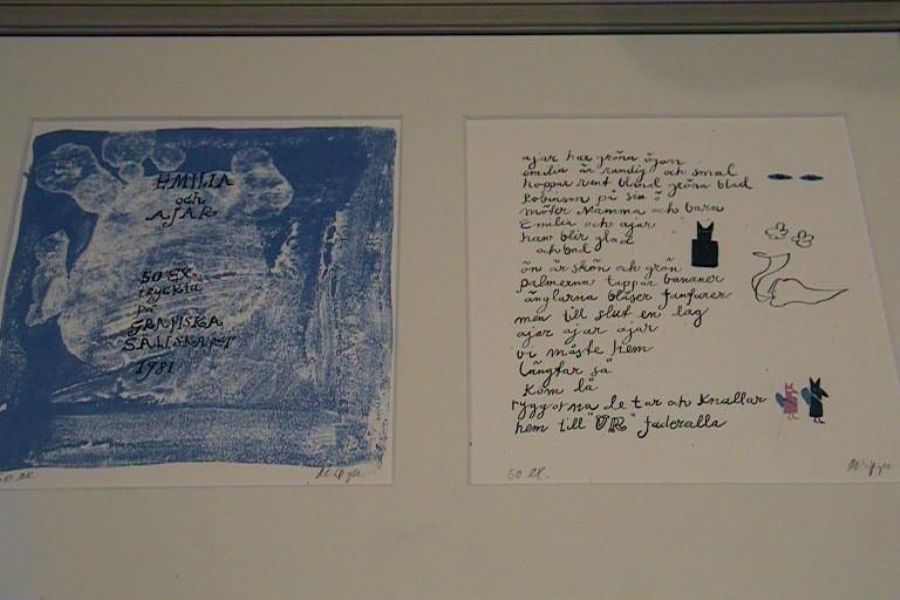 EMILIA
och
AJAR
50 EX.
tryckta
på
GRAFISKA
SÄLLSKAPET
1981
50 ex.
ajar har gröna ögon
emilia är randig och smal
hoppar runt bland gröna blad
Robinson på sin ö
möter Mamma och barn
Emilia och ajar
han blir glad
och bad
ön är skön och grön
palmerna tappar bananer
änglarna blåser fanfarer
men till slut en dag
ajar ajar ajar
vi måste hem
längtar så
kom då
ryggorna de tar och knallar
hem till "UR" faderalla
50 ex.